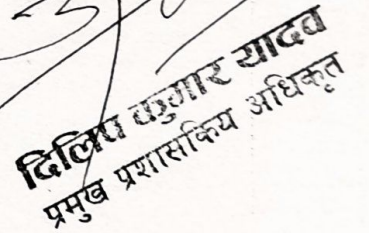 दिलिप कुमार यादव
प्रमुख प्रशासकिय अधिकृत